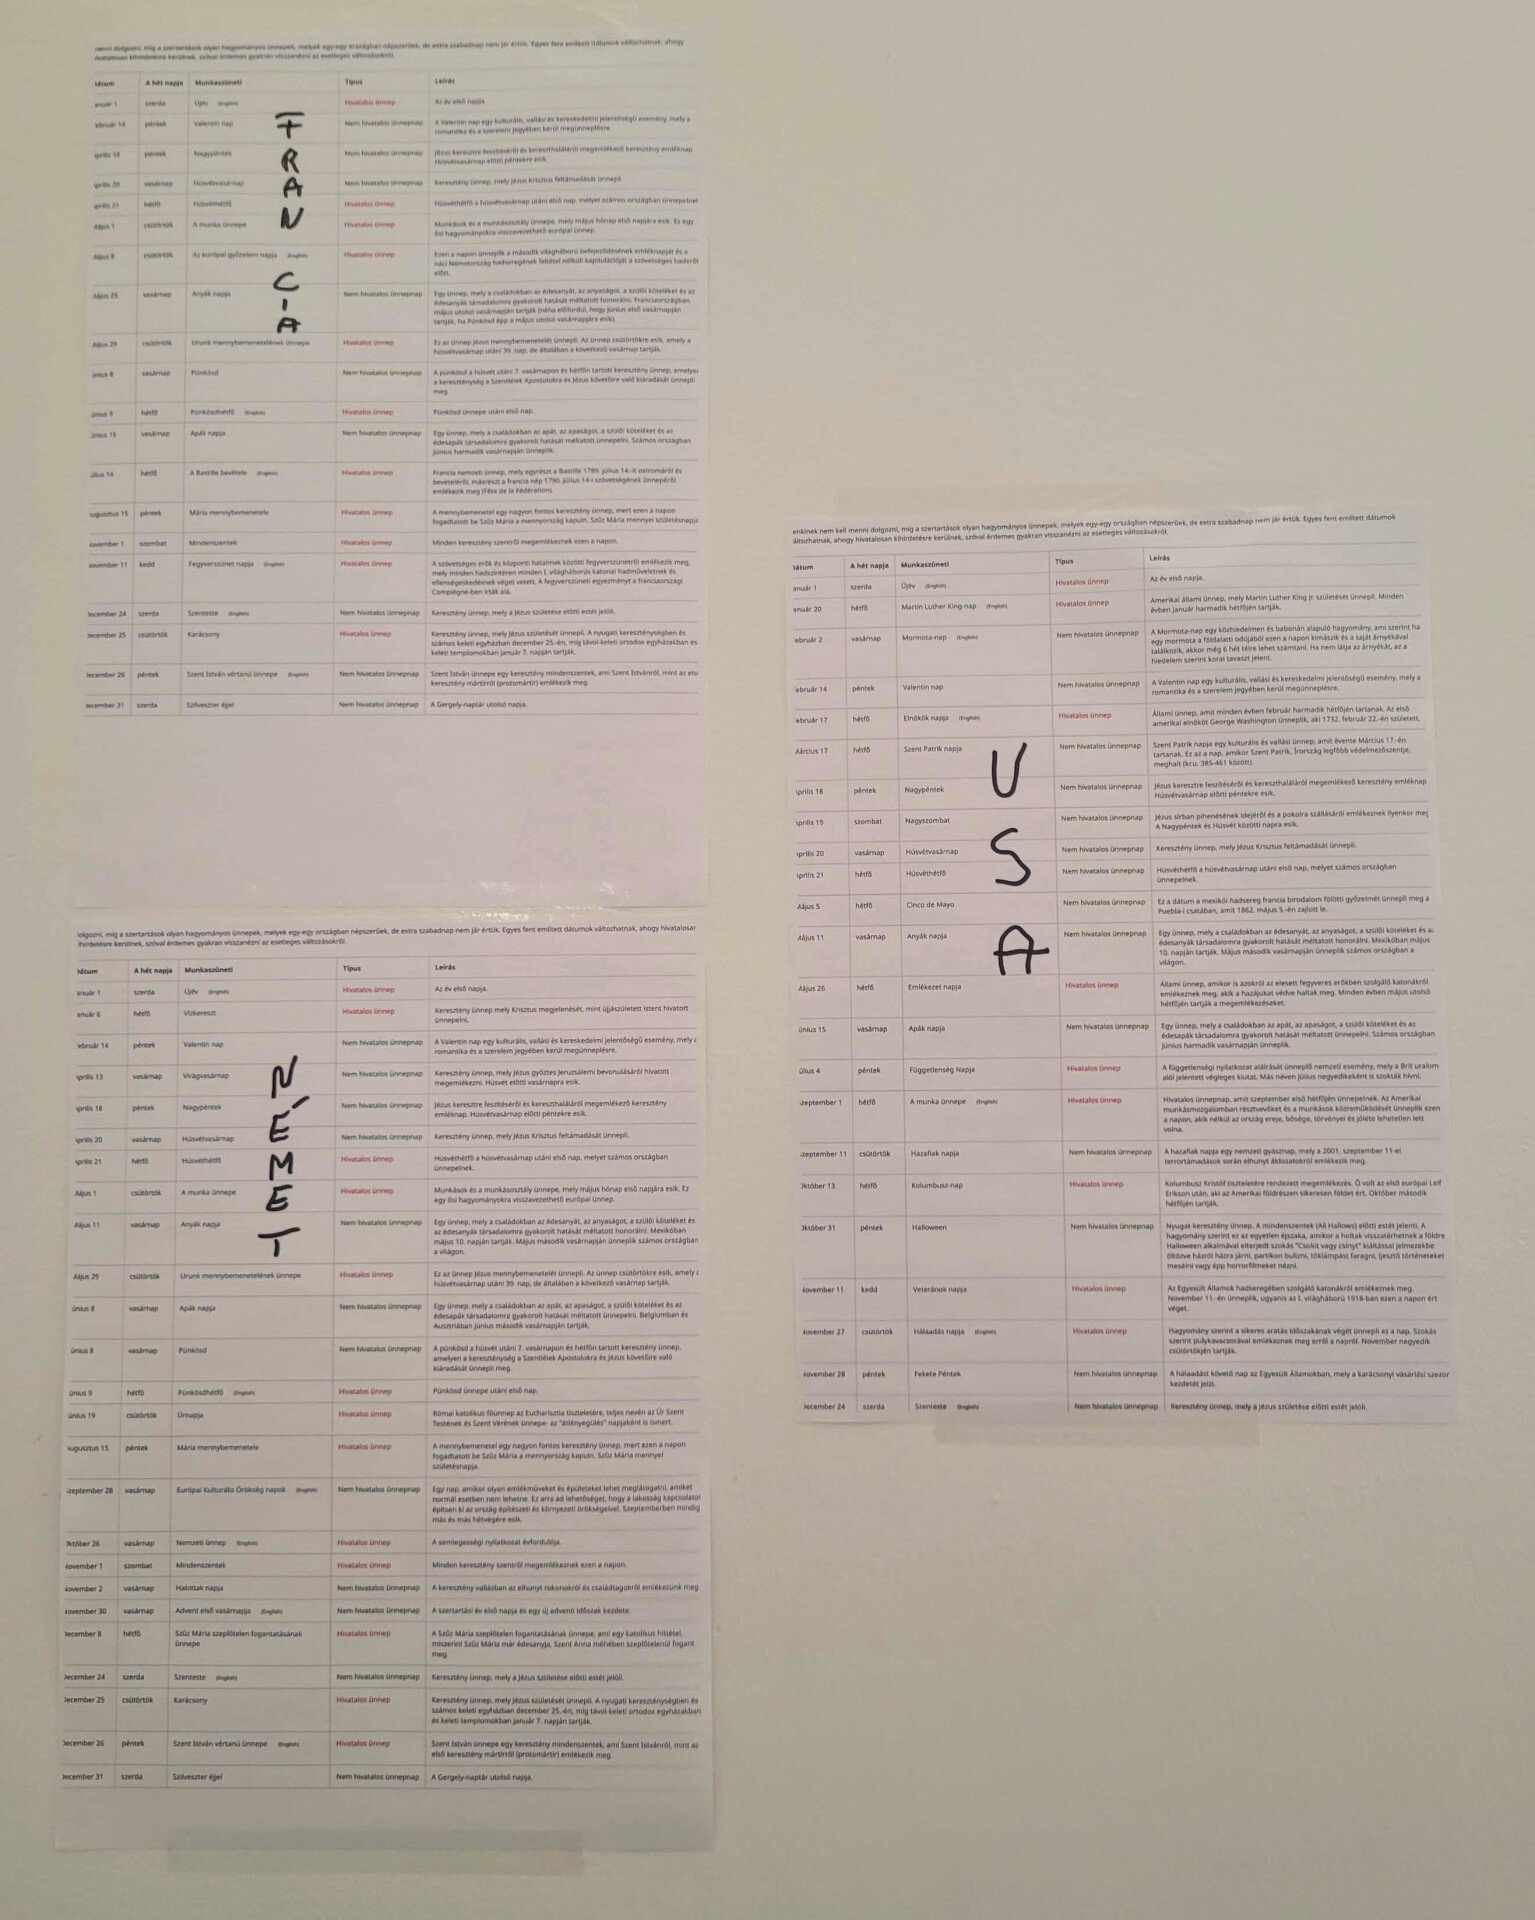 menni dolgozni, míg a szertartások olyan hagyományos ünnepek, melyek egy-egy országban népszerűek, de extra szabadnap nem jár értük. Egyes fent említett dátumok változhatnak, ahogy
hivatalosan kihirdetésre kerülnek, szóval érdemes gyakran visszanézni az esetleges változásokról.
Dátum A hét napja Munkaszüneti Típus Leírás
anuár 1 szerda Újév (English) Hivatalos ünnep Az év első napja.
ebruár 14 péntek Valentin nap Nem hivatalos ünnepnap A Valentin nap egy kulturális, vallási és kereskedelmi jelentőségű esemény, mely a
romantika és a szerelem jegyében kerül megünneplésre.
április 18 péntek Nagypéntek Nem hivatalos ünnepnap Jézus keresztre feszítéséről és kereszthaláláról megemlékező keresztény emléknap.
Húsvétvasárnap előtti péntekre esik.
április 20 vasárnap Húsvétvasárnap Nem hivatalos ünnepnap Keresztény ünnep, mely Jézus Krisztus feltámadását ünnepli.
április 21 hétfő Húsvéthétfő Hivatalos ünnep Húsvéthétfő a húsvétvasárnap utáni első nap, melyet számos országban ünnepelnek
Május 1 csütörtök A munka ünnepe Hivatalos ünnep Munkások és a munkásosztály ünnepe, mely május hónap első napjára esik. Ez egy
ősi hagyományokra visszavezethető európai ünnep.
Május 8 csütörtök Az európai győzelem napja (English) Hivatalos ünnep Ezen a napon ünneplik a második világháború befejeződésének emléknapját és a
náci Németország hadseregének feltétel nélküli kapitulációját a szövetséges haderői
előtt.
Május 25 vasárnap Anyák napja Nem hivatalos ünnepnap Egy ünnep, mely a családokban az édesanyát, az anyaságot, a szülői köteléket és az
édesanyák társadalomra gyakorolt hatását méltatott honorálni. Franciaországban
május utolsó vasárnapján tartják (néha előfordul, hogy június első vasárnapján
tartják, ha Pünkösd épp a május utolsó vasárnapjára esik).
Május 29 csütörtök Urunk mennybemenetelének ünnepe Hivatalos ünnep Ez az ünnep Jézus mennybemenetelét ünnepli. Az ünnep csütörtökre esik, amely a
húsvétvasárnap utáni 39. nap, de általában a következő vasárnap tartják.
únius 8 vasárnap Pünkösd Nem hivatalos ünnepnap A pünkösd a húsvét utáni 7. vasárnapon és hétfőn tartott keresztény ünnep, amelyen
a kereszténység a Szentlélek Apostolokra és Jézus követőire való kiáradását ünnepli
meg.
únius 9 hétfő Pünkösdhétfő (English) Hivatalos ünnep Pünkösd ünnepe utáni első nap.
únius 15 vasárnap Apák napja Nem hivatalos ünnepnap Egy ünnep, mely a családokban az apát, az apaságot, a szülői köteléket és az
édesapák társadalomra gyakorolt hatását méltatott ünnepelni. Számos országban
június harmadik vasárnapján ünneplik.
úlius 14 hétfő A Bastille bevétele (English) Hivatalos ünnep Francia nemzeti ünnep, mely egyrészt a Bastille 1789. július 14.-it ostromáról és
bevételéről, másrészt a francia nép 1790. július 14-i szövetségének ünnepéről
emlékezik meg (Fête de la Fédération).
augusztus 15 péntek Mária mennybemenetele Hivatalos ünnep A mennybemenetel egy nagyon fontos keresztény ünnep, mert ezen a napon
fogadtatott be Szűz Mária a mennyország kapuin. Szűz Mária mennyei születésnapja
november 1 szombat Mindenszentek Hivatalos ünnep Minden keresztény szentről megemlékeznek ezen a napon.
november 11 kedd Fegyverszünet napja (English) Hivatalos ünnep A szövetséges erők és központi hatalmak közötti fegyverszünetről emlékezik meg,
mely minden hadszíntéren minden I. világháborús katonai hadműveletnek és
ellenségeskedésnek véget vetett. A fegyverszüneti egyezményt a franciaországi
Compiègne-ben írták alá.
december 24 szerda Szenteste (English) Nem hivatalos ünnepnap Keresztény ünnep, mely a Jézus születése előtti estét jelöli.
december 25 csütörtök Karácsony Hivatalos ünnep Keresztény ünnep, mely Jézus születését ünnepli. A nyugati kereszténységben és
számos keleti egyházban december 25.-én, míg távol-keleti ortodox egyházakban és
keleti templomokban január 7. napján tartják.
december 26 péntek Szent István vértanú ünnepe (English) Nem hivatalos ünnepnap Szent István ünnepe egy keresztény mindenszentek, ami Szent Istvánról, mint az első
keresztény mártírról (protomártír) emlékezik meg.
december 31 szerda Szilveszter éjjel Nem hivatalos ünnepnap A Gergely-naptár utolsó napja.
FRANCIA
dolgozni, míg a szertartások olyan hagyományos ünnepek, melyek egy-egy országban népszerűek, de extra szabadnap nem jár értük. Egyes fent említett dátumok változhatnak, ahogy hivatalosan
kihirdetésre kerülnek, szóval érdemes gyakran visszanézni az esetleges változásokról.
Dátum A hét napja Munkaszüneti Típus Leírás
anuár 1 szerda Újév (English) Hivatalos ünnep Az év első napja.
anuár 6 hétfő Vízkereszt Hivatalos ünnep Keresztény ünnep mely Krisztus megjelenését, mint újjászületett istent hivatott
ünnepelni.
ebruár 14 péntek Valentin nap Nem hivatalos ünnepnap A Valentin nap egy kulturális, vallási és kereskedelmi jelentőségű esemény, mely a
romantika és a szerelem jegyében kerül megünneplésre.
április 13 vasárnap Virágvasárnap Nem hivatalos ünnepnap Keresztény ünnep, mely Jézus győztes Jeruzsálemi bevonulásáról hivatott
megemlékezni. Húsvét előtti vasárnapra esik.
április 18 péntek Nagypéntek Nem hivatalos ünnepnap Jézus keresztre feszítéséről és kereszthaláláról megemlékező keresztény
emléknap. Húsvétvasárnap előtti péntekre esik.
április 20 vasárnap Húsvétvasárnap Nem hivatalos ünnepnap Keresztény ünnep, mely Jézus Krisztus feltámadását ünnepli.
április 21 hétfő Húsvéthétfő Hivatalos ünnep Húsvéthétfő a húsvétvasárnap utáni első nap, melyet számos országban
ünnepelnek.
Május 1 csütörtök A munka ünnepe Hivatalos ünnep Munkások és a munkásosztály ünnepe, mely május hónap első napjára esik. Ez
egy ősi hagyományokra visszavezethető európai ünnep.
Május 11 vasárnap Anyák napja Nem hivatalos ünnepnap Egy ünnep, mely a családokban az édesanyát, az anyaságot, a szülői köteléket és
az édesanyák társadalomra gyakorolt hatását méltatott honorálni. Mexikóban
május 10. napján tartják. Május második vasárnapján ünneplik számos országban
a világon.
Május 29 csütörtök Urunk mennybemenetelének ünnepe Hivatalos ünnep Ez az ünnep Jézus mennybemenetelét ünnepli. Az ünnep csütörtökre esik, amely a
húsvétvasárnap utáni 39. nap, de általában a következő vasárnap tartják.
únius 8 vasárnap Apák napja Nem hivatalos ünnepnap Egy ünnep, mely a családokban az apát, az apaságot, a szülői köteléket és az
édesapák társadalomra gyakorolt hatását méltatott ünnepelni. Belgiumban és
Ausztriában június második vasárnapján tartják.
únius 8 vasárnap Pünkösd Nem hivatalos ünnepnap A pünkösd a húsvét utáni 7. vasárnapon és hétfőn tartott keresztény ünnep,
amelyen a kereszténység a Szentlélek Apostolokra és Jézus követőire való
kiáradását ünnepli meg.
únius 9 hétfő Pünkösdhétfő (English) Hivatalos ünnep Pünkösd ünnepe utáni első nap.
únius 19 csütörtök Úrnapja Hivatalos ünnep Római katolikus főünnep az Eucharisztia tiszteletére, teljes nevén az Úr Szent
Testének és Szent Vérének ünnepe- az "átlényegülés" napjaként is ismert.
augusztus 15 péntek Mária mennybemenetele Hivatalos ünnep A mennybemenetel egy nagyon fontos keresztény ünnep, mert ezen a napon
fogadtatott be Szűz Mária a mennyország kapuin. Szűz Mária mennyei
születésnapja.
szeptember 28 vasárnap Európai Kulturális Örökség napok (English) Nem hivatalos ünnepnap Egy nap, amikor olyan emlékműveket és épületeket lehet meglátogatni, amiket
normál esetben nem lehetne. Ez arra ad lehetőséget, hogy a lakosság kapcsolatot
építsen ki az ország építészeti és környezeti örökségeivel. Szeptemberben mindig
más és más hétvégére esik.
Október 26 vasárnap Nemzeti ünnep (English) Hivatalos ünnep A semlegességi nyilatkozat évfordulója.
november 1 szombat Mindenszentek Hivatalos ünnep Minden keresztény szentről megemlékeznek ezen a napon.
november 2 vasárnap Halottak napja Nem hivatalos ünnepnap A keresztény vallásban az elhunyt rokonokról és családtagokról emlékezünk meg
november 30 vasárnap Advent első vasárnapja (English) Nem hivatalos ünnepnap A szertartási év első napja és egy új adventi időszak kezdete.
december 8 hétfő Szűz Mária szeplőtelen fogantatásának Hivatalos ünnep A Szűz Mária szeplőtelen fogantatásának ünnepe, ami egy katolikus hittétel,
ünnepe miszerint Szűz Mária már édesanyja, Szent Anna méhében szeplőtelenül fogant
meg.
december 24 szerda Szenteste (English) Nem hivatalos ünnepnap Keresztény ünnep, mely a Jézus születése előtti estét jelöli.
december 25 csütörtök Karácsony Hivatalos ünnep Keresztény ünnep, mely Jézus születését ünnepli. A nyugati kereszténységben és
számos keleti egyházban december 25.-én, míg távol-keleti ortodox egyházakban
és keleti templomokban január 7. napján tartják.
december 26 péntek Szent István vértanú ünnepe (English) Hivatalos ünnep Szent István ünnepe egy keresztény mindenszentek, ami Szent Istvánról, mint az
első keresztény mártírról (protomártír) emlékezik meg.
december 31 szerda Szilveszter éjjel Nem hivatalos ünnepnap A Gergely-naptár utolsó napja.
NÉMET
enkinek nem kell menni dolgozni, míg a szertartások olyan hagyományos ünnepek, melyek egy-egy országban népszerűek, de extra szabadnap nem jár értük. Egyes fent említett dátumok
áltozhatnak, ahogy hivatalosan kihirdetésre kerülnek, szóval érdemes gyakran visszanézni az esetleges változásokról.
Dátum A hét napja Munkaszüneti Típus Leírás
anuár 1 szerda Újév (English) Hivatalos ünnep Az év első napja.
anuár 20 hétfő Martin Luther King-nap (English) Hivatalos ünnep Amerikai állami ünnep, mely Martin Luther King Jr. születését ünnepli. Minden
évben január harmadik hétfőjén tartják.
ebruár 2 vasárnap Mormota-nap (English) Nem hivatalos ünnepnap A Mormota-nap egy közhiedelmen és babonán alapuló hagyomány, ami szerint ha
egy mormota a földalatti odújából ezen a napon kimászik és a saját árnyékával
találkozik, akkor még 6 hét télre lehet számítani. Ha nem látja az árnyékát, az a
hiedelem szerint korai tavaszt jelent.
ebruár 14 péntek Valentin nap Nem hivatalos ünnepnap A Valentin nap egy kulturális, vallási és kereskedelmi jelentőségű esemény, mely a
romantika és a szerelem jegyében kerül megünneplésre.
ebruár 17 hétfő Elnökök napja (English) Hivatalos ünnep Állami ünnep, amit minden évben február harmadik hétfőjén tartanak. Az első
amerikai elnököt George Washington ünneplik, aki 1732. február 22.-én született.
Március 17 hétfő Szent Patrik napja Nem hivatalos ünnepnap Szent Patrik napja egy kulturális és vallási ünnep, amit évente Március 17.-én
tartanak. Ez az a nap, amikor Szent Patrik, Írország legfőbb védelmezőszentje,
meghalt (kr.u. 385-461 között).
április 18 péntek Nagypéntek Nem hivatalos ünnepnap Jézus keresztre feszítéséről és kereszthaláláról megemlékező keresztény emléknap
Húsvétvasárnap előtti péntekre esik.
április 19 szombat Nagyszombat Nem hivatalos ünnepnap Jézus sírban pihenésének idejéről és a pokolra szállásáról emlékeznek ilyenkor meg
A Nagypéntek és Húsvét közötti napra esik.
április 20 vasárnap Húsvétvasárnap Nem hivatalos ünnepnap Keresztény ünnep, mely Jézus Krisztus feltámadását ünnepli.
április 21 hétfő Húsvéthétfő Nem hivatalos ünnepnap Húsvéthétfő a húsvétvasárnap utáni első nap, melyet számos országban
ünnepelnek.
Május 5 hétfő Cinco de Mayo Nem hivatalos ünnepnap Ez a dátum a mexikói hadsereg francia birodalom fölötti győzelmét ünnepli meg a
Puebla-i csatában, amit 1862. május 5.-én zajlott le.
Május 11 vasárnap Anyák napja Nem hivatalos ünnepnap Egy ünnep, mely a családokban az édesanyát, az anyaságot, a szülői köteléket és az
édesanyák társadalomra gyakorolt hatását méltatott honorálni. Mexikóban május
10. napján tartják. Május második vasárnapján ünneplik számos országban a
világon.
Május 26 hétfő Emlékezet napja Hivatalos ünnep Állami ünnep, amikor is azokról az elesett fegyveres erőkben szolgáló katonákról
emlékeznek meg, akik a hazájukat védve haltak meg. Minden évben május utolsó
hétfőjén tartják a megemlékezéseket.
únius 15 vasárnap Apák napja Nem hivatalos ünnepnap Egy ünnep, mely a családokban az apát, az apaságot, a szülői köteléket és az
édesapák társadalomra gyakorolt hatását méltatott ünnepelni. Számos országban
június harmadik vasárnapján ünneplik.
úlius 4 péntek Függetlenség Napja Hivatalos ünnep A függetlenségi nyilatkozat aláírását ünneplő nemzeti esemény, mely a Brit uralom
alól jelentett végleges kiutat. Más néven július negyedikeként is szokták hívni.
szeptember 1 hétfő A munka ünnepe (English) Hivatalos ünnep Hivatalos ünnepnap, amit szeptember első hétfőjén ünnepelnek. Az Amerikai
munkásmozgalomban résztvevőket és a munkások közreműködését ünneplik ezen
a napon, akik nélkül az ország ereje, bősége, törvényei és jóléte lehetetlen lett
volna.
szeptember 11 csütörtök Hazafiak napja Nem hivatalos ünnepnap A hazafiak napja egy nemzeti gyásznap, mely a 2001. szeptember 11-ei
terrortámadások során elhunyt áldozatokról emlékezik meg.
Október 13 hétfő Kolumbusz-nap Hivatalos ünnep Kolumbusz Kristóf tiszteletére rendezett megemlékezés. Ő volt az első európai Leif
Erikson után, aki az Amerikai földrészen sikeresen földet ért. Október második
hétfőjén tartják.
Október 31 péntek Halloween Nem hivatalos ünnepnap Nyugat-keresztény ünnep. A mindenszentek (All Hallows) előtti estét jelenti. A
hagyomány szerint ez az egyetlen éjszaka, amikor a holtak visszatérhetnek a földre
Halloween alkalmával elterjedt szokás "Csokit vagy csínyt" kiáltással jelmezekbe
öltözve házról házra járni, partikon bulizni, töklámpást faragni, ijesztő történeteket
mesélni vagy épp horrorfilmeket nézni.
november 11 kedd Veteránok napja Hivatalos ünnep Az Egyesült Államok hadseregében szolgáló katonákról emlékeznek meg.
November 11.-én ünneplik, ugyanis az I. világháború 1918-ban ezen a napon ért
véget.
november 27 csütörtök Hálaadás napja (English) Hivatalos ünnep Hagyomány szerint a sikeres aratás időszakának végét ünnepli ez a nap. Szokás
szerint pulykavacsorával emlékeznek meg erről a napról. November negyedik
csütörtökjén tartják.
november 28 péntek Fekete Péntek Nem hivatalos ünnepnap A hálaadást követő nap az Egyesült Államokban, mely a karácsonyi vásárlási szezon
kezdetét jelzi.
december 24 szerda Szenteste (English) Nem hivatalos ünnepnap Keresztény ünnep, mely a Jézus születése előtti estét jelöli.
USA